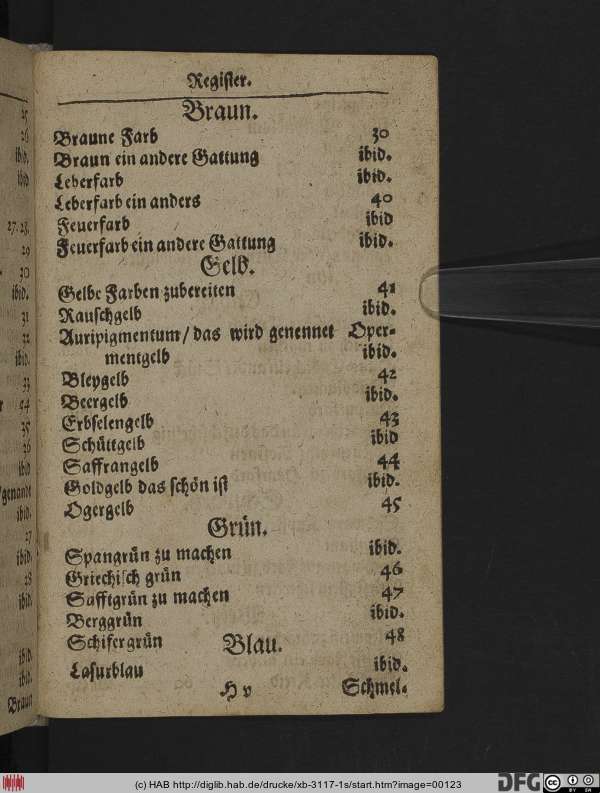 25
26
ibid.
ibid
27. 28.
29
30
ibid.
31
32
ibid.
33
34
35
26
ibid
genandt
ibid.
27
ibid.
28
ibid.
ibid.
ibid.
Braun
Register.
Braun.
Braune Farb 30
Braun ein andere Gattung ibid.
Leberfarb ibid.
Leberfarb ein anders 40
Feuerfarb ibid
Feuerfarb ein andere Gattung ibid.
Gelb.
Gelbe Farben zubereiten 41
Rauschgelb ibid.
Auripigmentum / das wird genennet Oper-
mentgelb ibid.
Bleygelb 42
Beergelb ibid.
Erbselengelb 43
Schüttgelb ibid
Saffrangelb 44
Goldgelb das schön ist ibid.
Ogergelb 45
Grün.
Spangrün zu machen ibid.
Griechisch grün 46
Safftgrün zu machen 47
Berggrün ibid.
Schifergrün 48
Blau.
Lasurblau ibid.
H v Schmel-
(c) HAB http://diglib.hab.de/drucke/xb-3117-1s/start.htm?image=00123
DFG
cc
BY SA